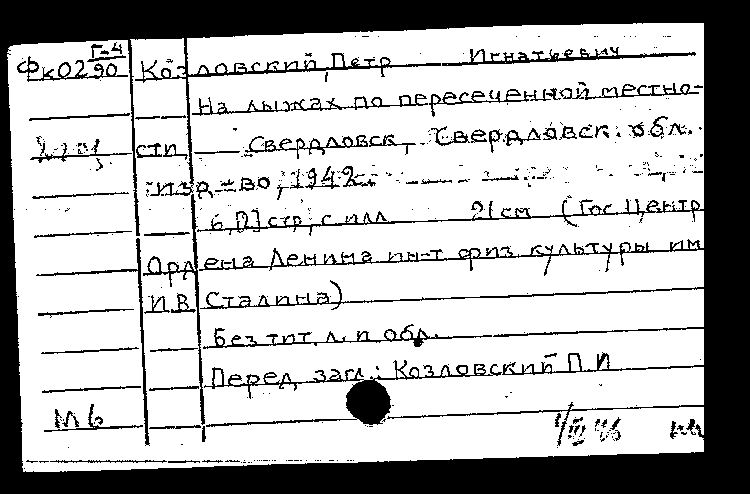 Г-4
Фк02 90 Козловский, Петр Игнатьевич
На лыжах по пересеченной местно-
сти, Свердловск, Свердловск. обл.
изд-во, 1942.
6,[2] стр, с илл 21см (Гос. Центр
Ордена Ленина ин-т физ культуры им
И.В. Сталина)
Без тит. л. и обл.
Перед загл.: Козловский П.И
М6
1/III 46